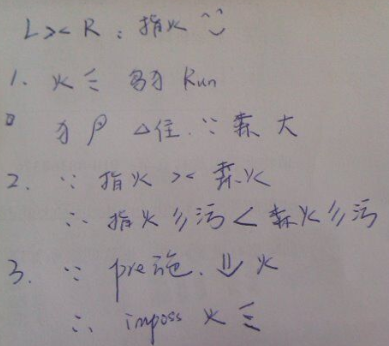 L >< R : 指火
1. 火三 多力 Run
力 β △住. ∵ 森大
2. ∵ 指火 >< 森火
∴ 指火 污 < 森火 污
3. ∵ pre施. ⇓ 火
∴ imposs 火三